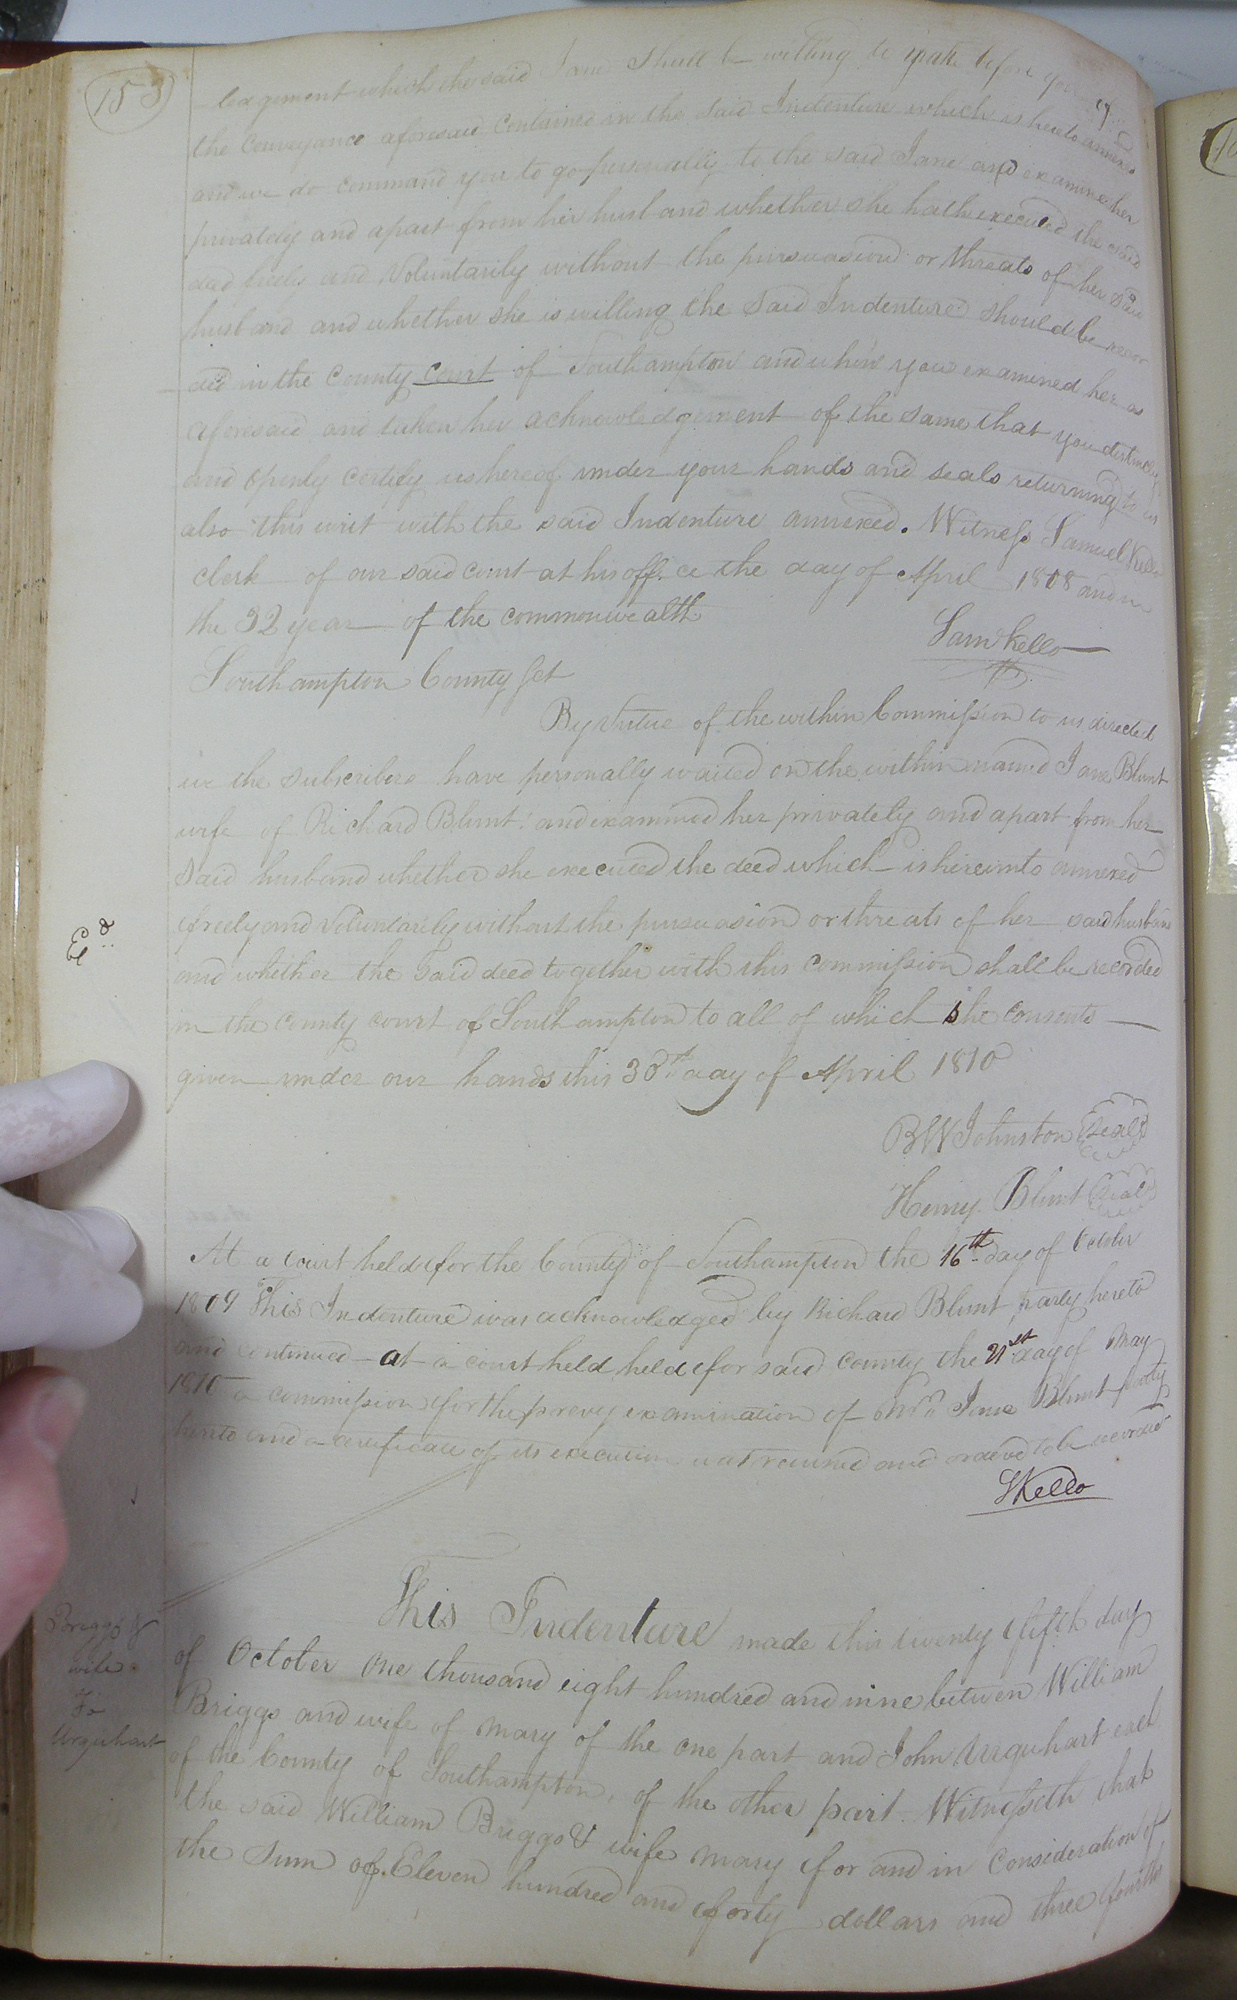 153
ledgement which the said Jane shall be willing to make before you of
the Conveyance aforesaid contained in the said Indenture which is hereto annexed
and we do command you to go personally to the said Jane and examine her
privately and apart from her husband whether she hath executed the said
deed freely and Voluntarily without the pursuasion or threats of her said
husband and whether she is willing the said Indenture should be recor
ded in the County Court of Southampton and when you examined her as
aforesaid and taken her acknowledgement of the same that you distinctly
and openly certify us hereof under your hands and seals returning to us
also this writ with the said Indenture annexed. Witness Samuel Kello
clerk of our said court at his office the day of April 1808 and in
the 32 year of the commonwealth
Saml Kello
Southampton County Sct
By virtue of the within Commission to us directed
we the subscribers have personally waited on the within named Jane Blunt
wife of Richard Blunt and examined her privately and apart from her
said husband whether she executed the deed which is hereunto annexed
freely and Voluntarily without the pursuasion or threats of her said husband
Ed
and whether the said deed together with this commission shall be recorded
in the county court of Southampton to all of which she consents
given under our hands this 30th day of April 1810
BW Johnston Seal
Henry Blunt Seal
At a court held for the County of Southampton the 16th day of October
1809 This Indenture was acknowledged by Richard Blunt party hereto
and continued at a court held held for said county the 21st day of May
1810 a commission for the prevy examination of Mrs Jane Blunt party
hereto and a certificate of its execution was returned and ordered to be recorded
S Kello
This Indenture made this twenty fifth day
Briggs &
wife
To
Urquhart
of October one thousand eight hundred and nine between William
Briggs and wife of Mary of the one part and John Urquhart each
of the County of Southampton, of the other part. Witnesseth that
the said William Briggs & wife Mary for and in Consideration of
the sum of Eleven hundred and forty dollars and three fourths